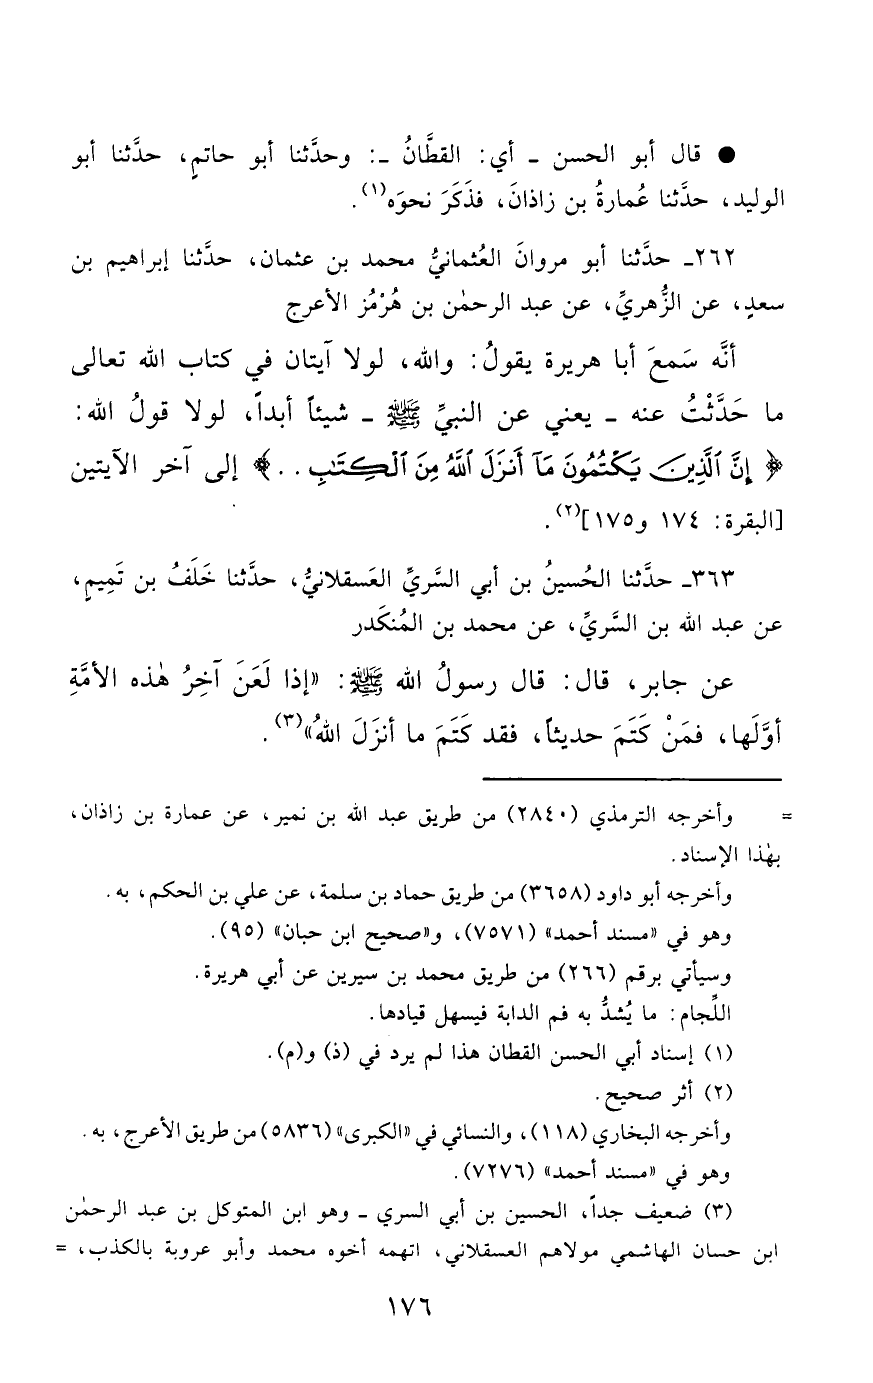 ● قال أبو الحسن ـ أي: القطَّانُ ـ: وحدَّثنا أبو حاتمٍ، حدَّثنا أبو
الوليد، حدَّثنا عُمارةُ بن زاذانَ، فذَكَرَ نحوَه(١).
٢٦٢ـ حدَّثنا أبو مروانَ العُثمانيُّ محمد بن عثمان، حدَّثنا إبراهيم بن
سعدٍ، عن الزُّهريِّ، عن عبد الرحمٰن بن هُرْمُز الأعرج
أنَّه سَمعَ أبا هريرة يقولُ: والله، لولا آيتان في كتاب الله تعالى
ما حَدَّثْتُ عنه ـ يعني عن النبيِّ ﷺ ـ شيئاً أبداً، لولا قولُ الله:
﴿إِنَّ ٱلَّذِينَ يَكْتُمُونَ مَآ أَنزَلَ ٱللَّهُ مِنَ ٱلْكِتَٰبِ . .﴾ إلى آخر الآيتين
[البقرة: ١٧٤ و١٧٥](٢).
٣٦٣ـ حدَّثنا الحُسينُ بن أبي السَّريِّ العَسقلانيُّ، حدَّثنا خَلَفُ بن تَمِيمٍ،
عن عبد الله بن السَّريِّ، عن محمد بن المُنكَدر
عن جابر، قال: قال رسولُ الله ﷺ: «إذا لَعَنَ آخِرُ هٰذه الأمَّةِ
أوَّلَها، فمَنْ كَتَمَ حديثاً، فقد كَتَمَ ما أنزَلَ اللهُ»(٣).
= وأخرجه الترمذي (٢٨٤٠) من طريق عبد الله بن نمير، عن عمارة بن زاذان،
بهٰذا الإسناد.
وأخرجه أبو داود (٣٦٥٨) من طريق حماد بن سلمة، عن علي بن الحكم، به.
وهو في «مسند أحمد» (٧٥٧١)، و«صحيح ابن حبان» (٩٥).
وسيأتي برقم (٢٦٦) من طريق محمد بن سيرين عن أبي هريرة.
اللِّجام: ما يُشدُّ به فم الدابة فيسهل قيادها.
(١) إسناد أبي الحسن القطان هذا لم يرد في (ذ) و(م).
(٢) أثر صحيح.
وأخرجه البخاري (١١٨)، والنسائي في «الكبرى» (٥٨٣٦) من طريق الأعرج، به.
وهو في «مسند أحمد» (٧٢٧٦).
(٣) ضعيف جداً، الحسين بن أبي السري ـ وهو ابن المتوكل بن عبد الرحمٰن
ابن حسان الهاشمي مولاهم العسقلاني، اتهمه أخوه محمد وأبو عروبة بالكذب، =
١٧٦